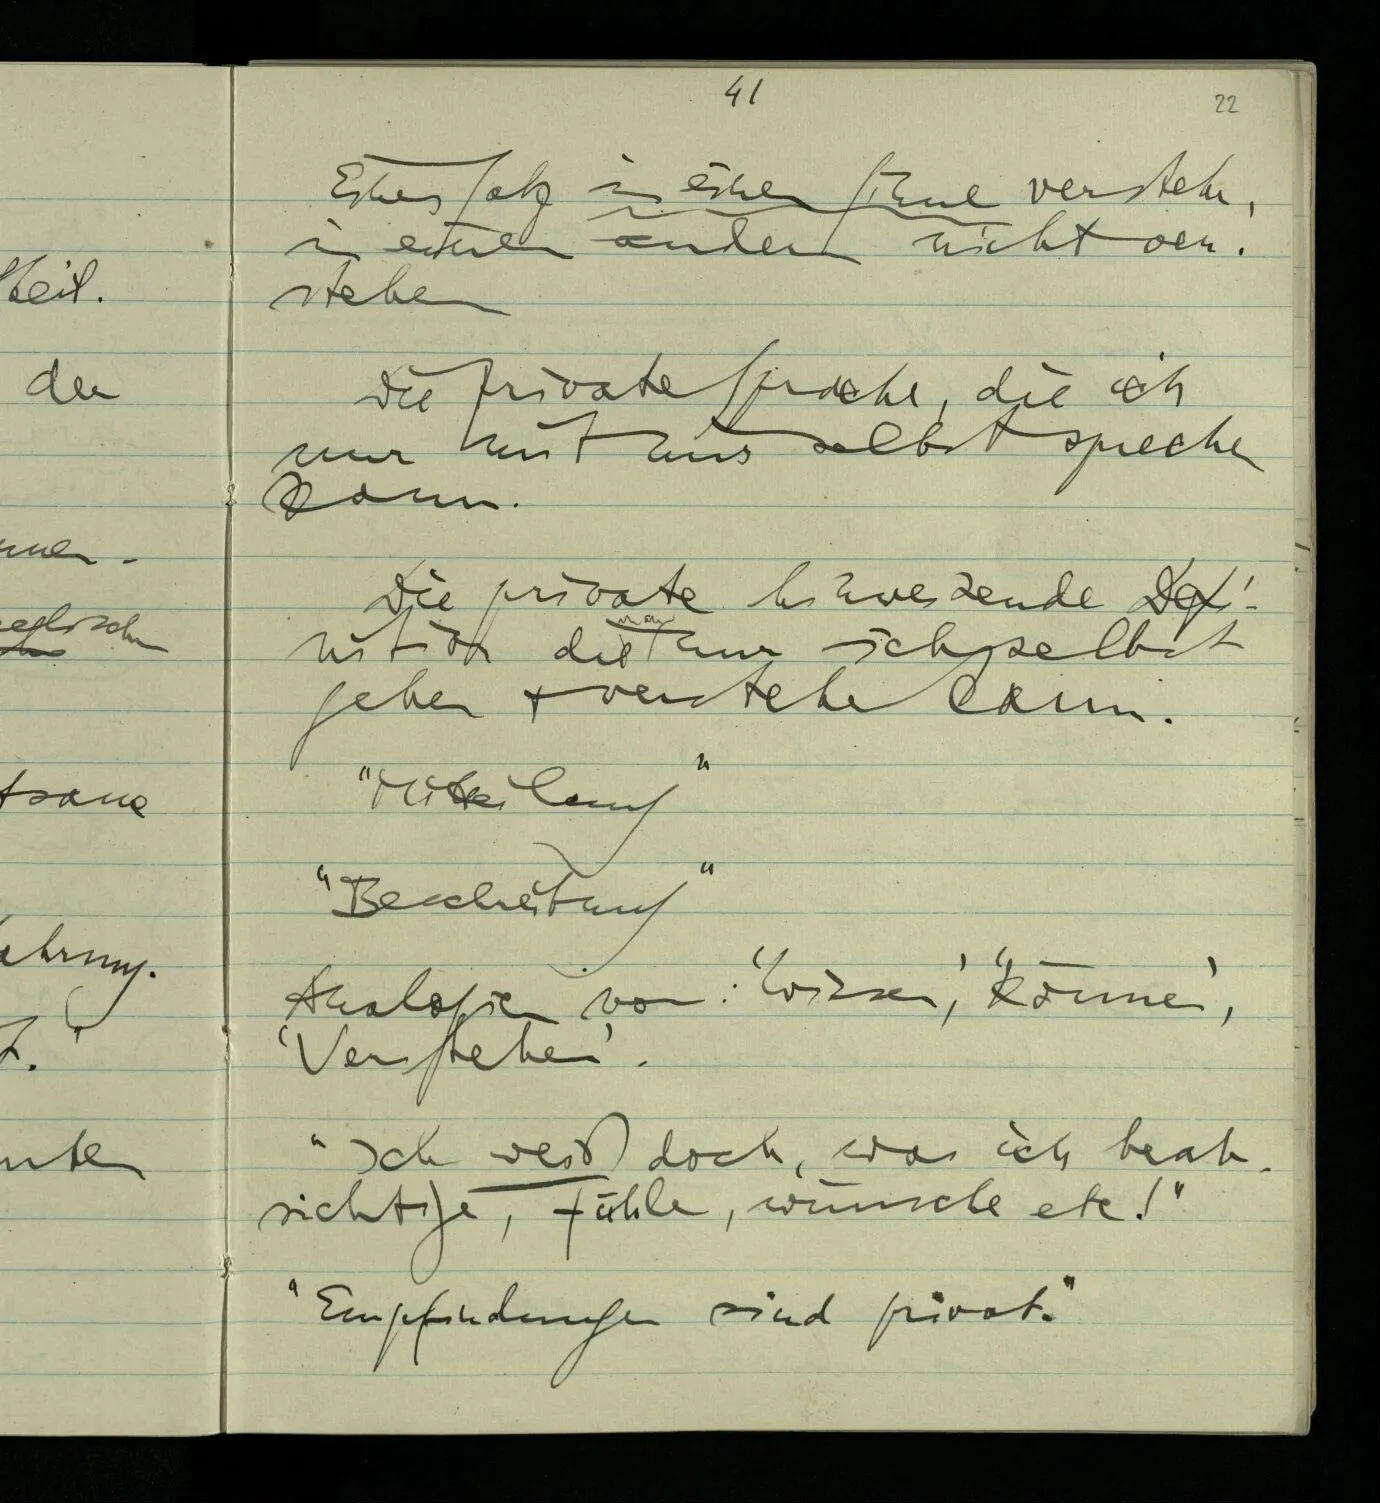 41
22
Einen Satz in einem Sinne verstehen,
in einem andern nicht ver-
stehen
Die private Sprache, die ich
nur mit mir selbst sprechen
kann.
Die private hinweisende Defi-
nition die man nur sich selbst
geben + verstehen kann.
"Mitteilung"
"Beschreibung"
Analogien von: 'Wissen', 'Können',
'Verstehen'.
"Ich weiß doch, was ich beab-
sichtige, fühle, wünsche etc!"
"Empfindungen sind privat."
theil.
der
tsame